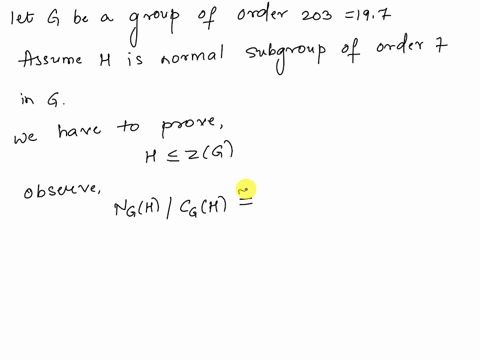 let G be a group of order 203 = 19.7
Assume H is normal subgroup of order 7
in G.
we have to prove,
H ≤ Z(G)
observe,
NG(H) / CG(H) ≅